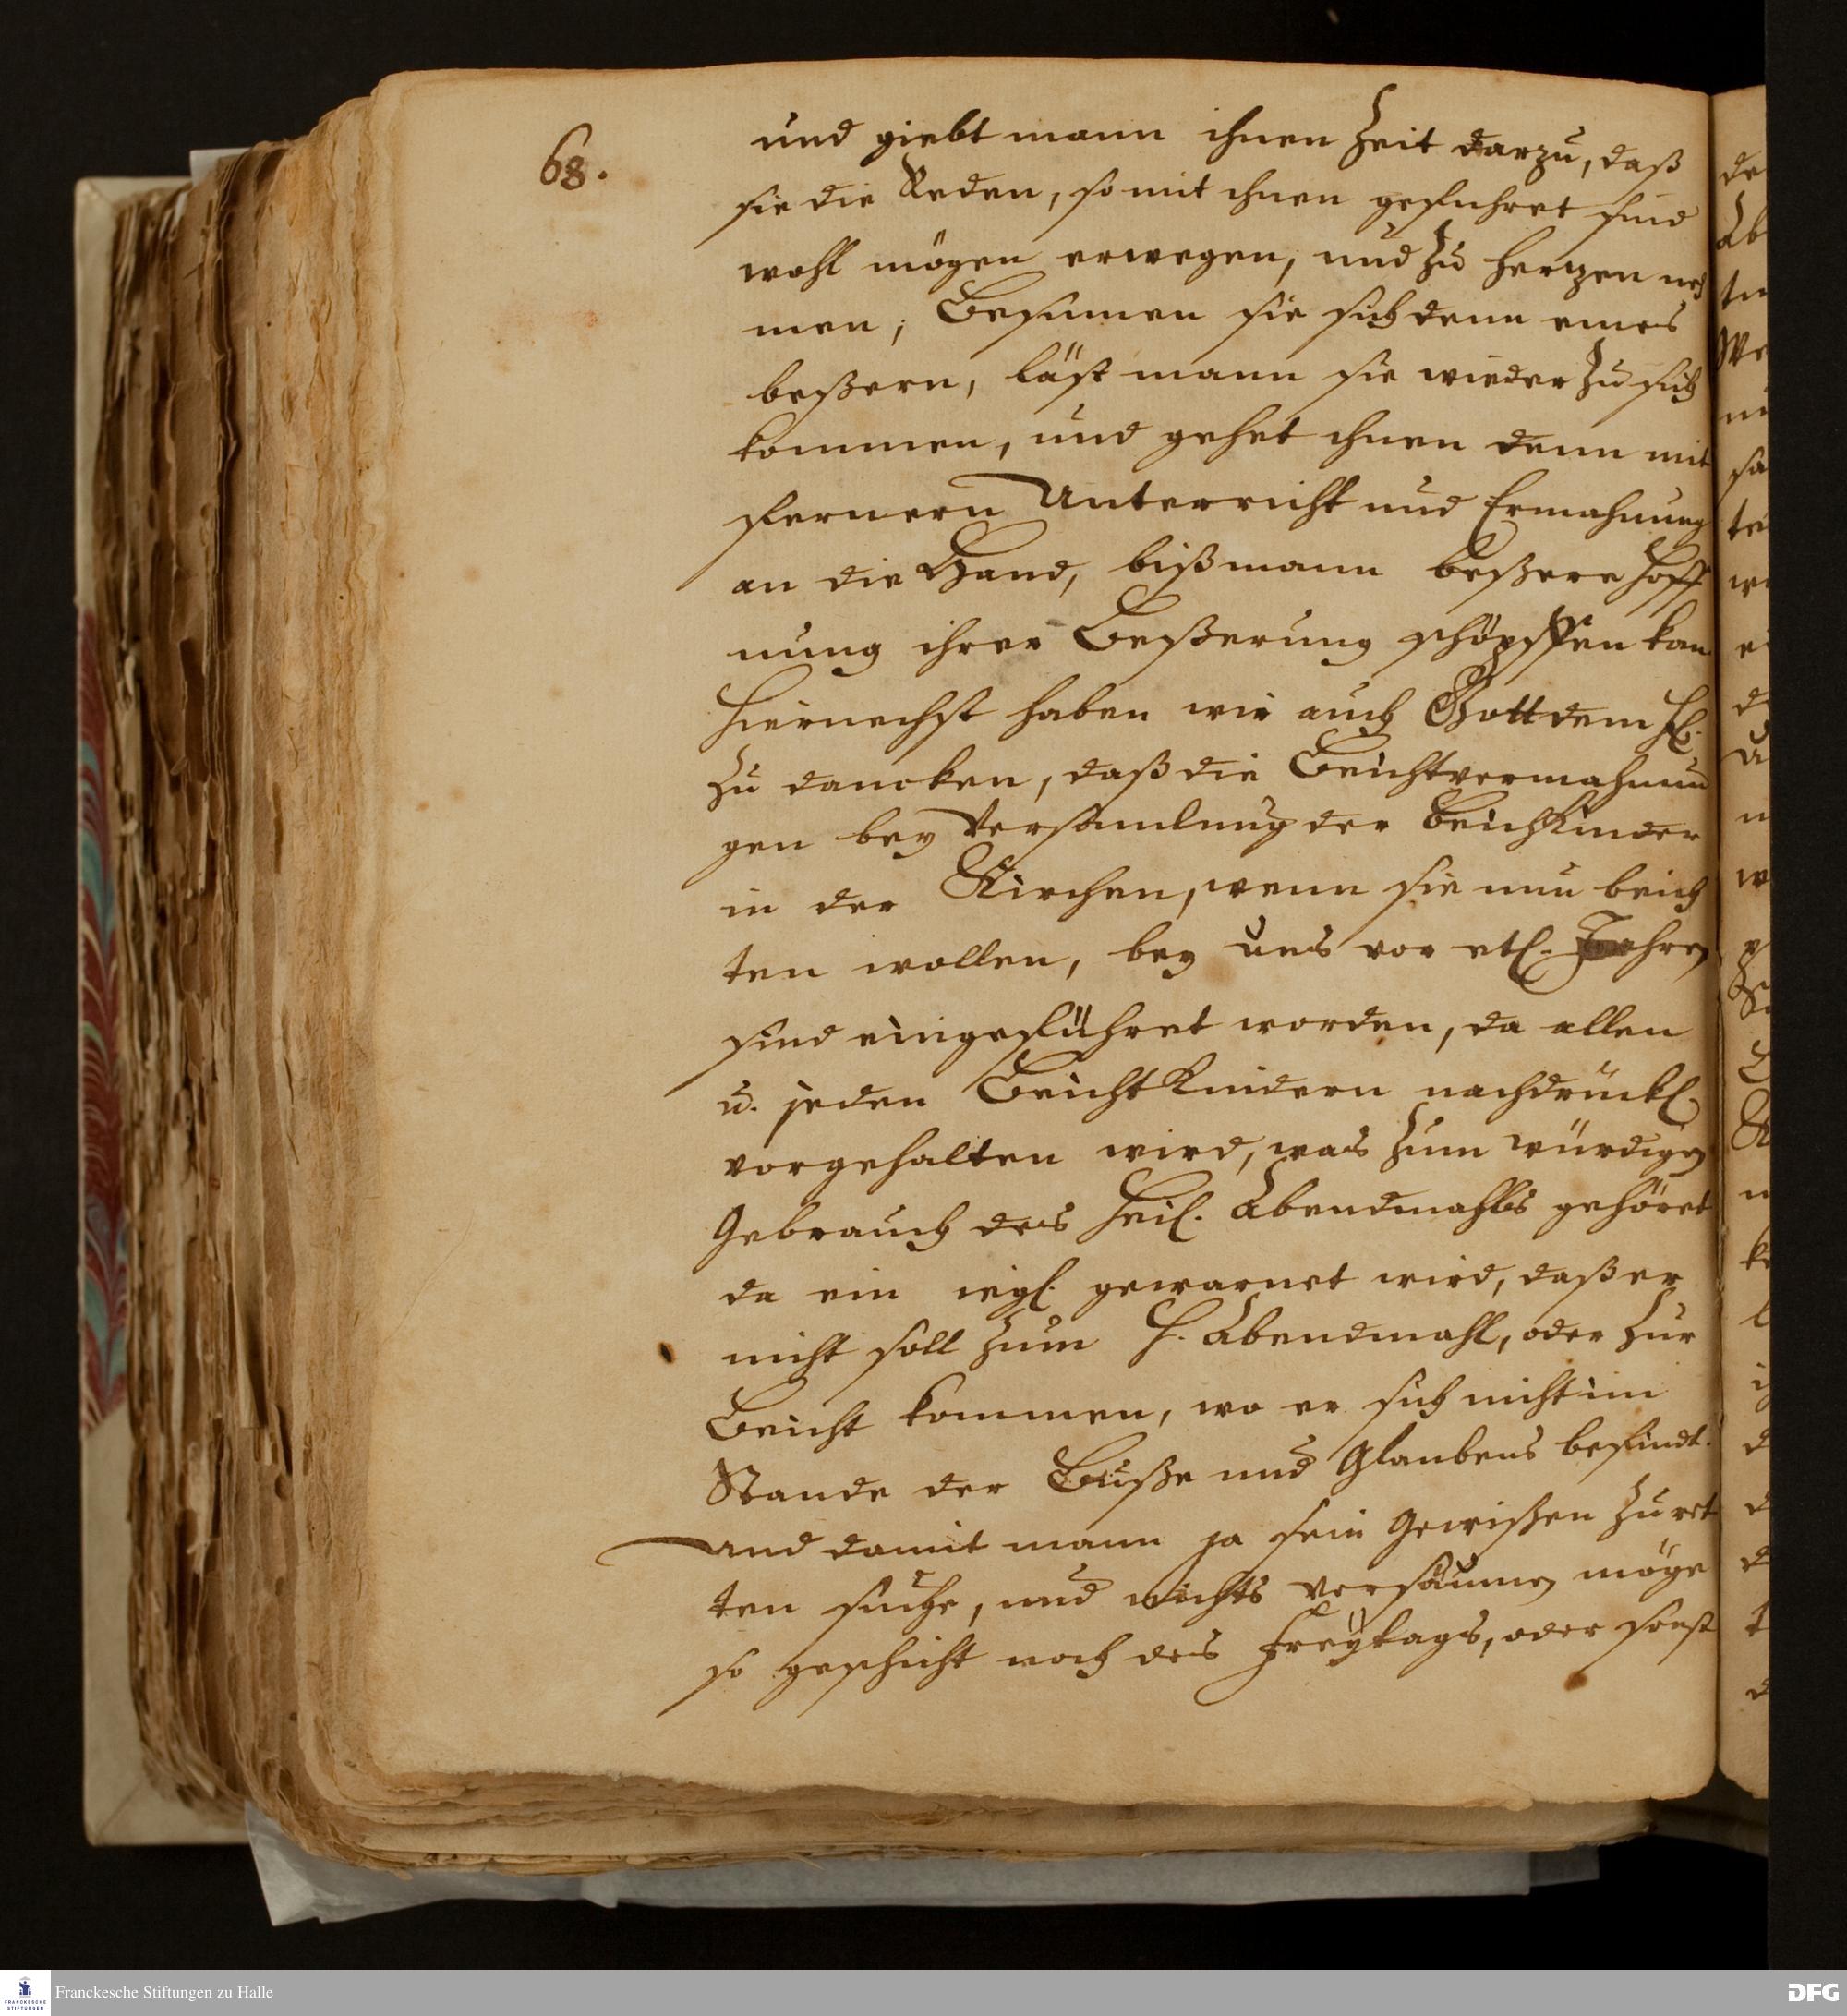 68.
und giebt mann ihnen Zeit darzu, daß
sie die Reden, so mit ihnen geführet sind
wohl mögen erwegen, und zu Hertzen neh
men; Besinnen sie sich denn eines
beßern, läst mann sie wieder zu sich
kommen, und gehet ihnen denn mit
fernern Unterricht und Ermahnung
an die Hand, biß mann beßere Hoff
nung ihrer Beßerung schöpffen kan
Hiernechst haben wir auch Gott dem H.
zu dancken, daß die Beichtvermahnun
gen bey Versamlung der Beichtkinder
in der Kirchen, wenn sie nun beich
ten wollen, bey uns vor etl. Jahren
sind eingeführet worden, da allen
u. jeden Beicht Kindern nachdrückl.
vorgehalten wird, was zum würdigen
Gebrauch des Heil. Abendmahls gehöret
da ein iegl. gewarnet wird, daß er
nicht soll zum H. Abendmahl, oder zur
Beicht kommen, wo er sich nicht im
Stande der Buße und Glaubens befindt.
Und damit mann ja sein Gewißen zu ret
ten suche, und nichts versäumen möge
so geschicht noch des Freÿtags, oder sonst
Franckesche Stiftungen zu Halle
DFG